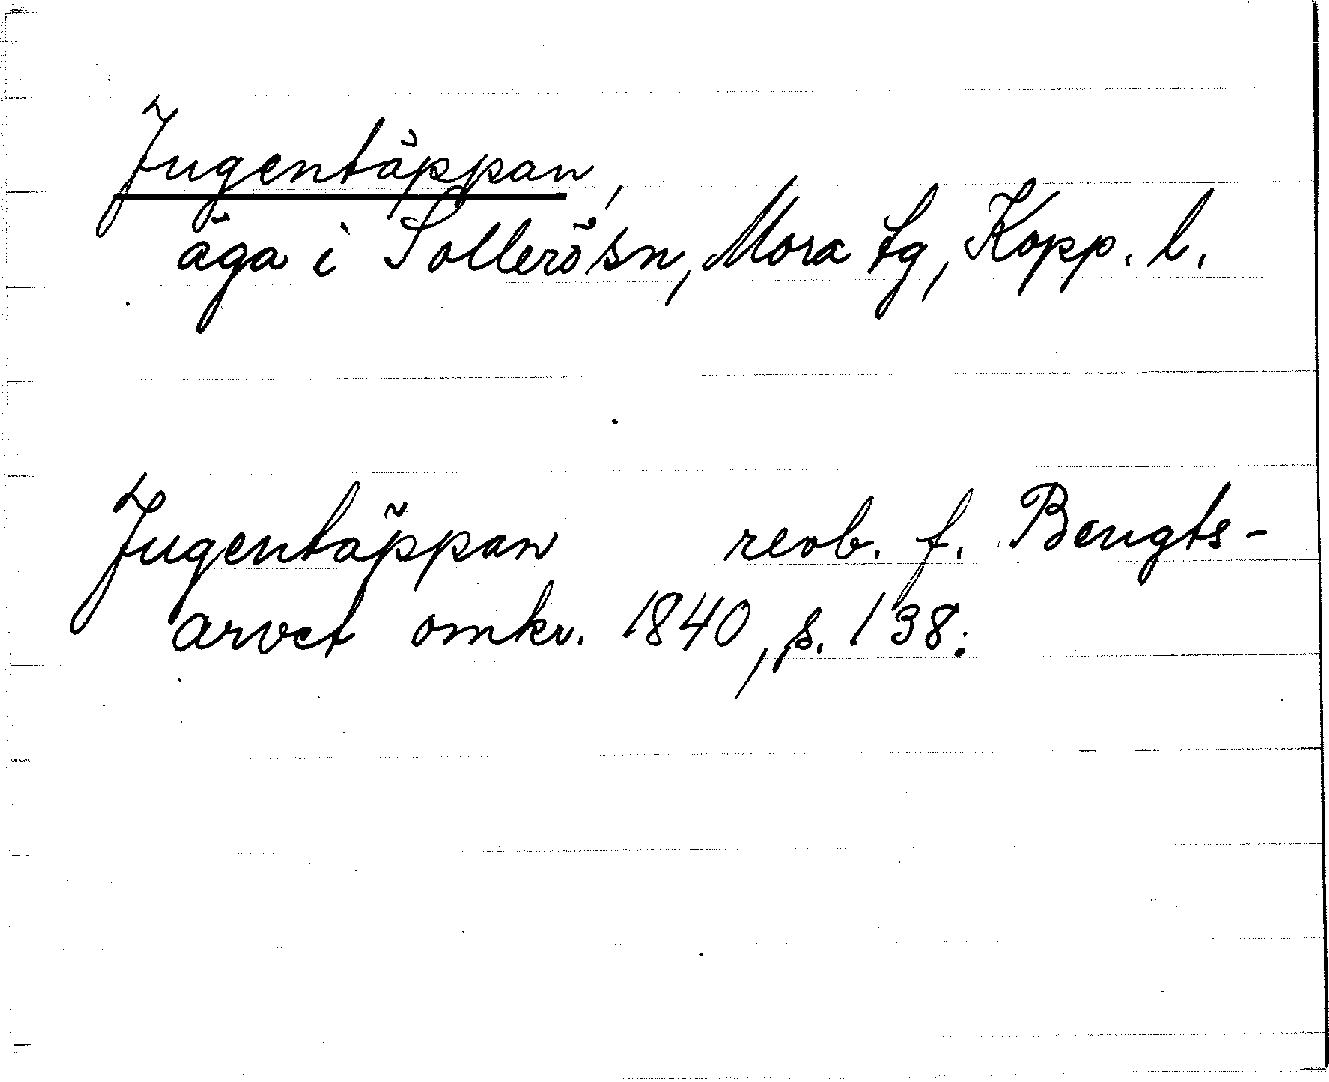 Jugentäppan,
äga i Sollerö sn, Mora tg, Kopp. l.
Jugentäppan revb. f. Bengts-
arvet omkr. 1840, s. 138.